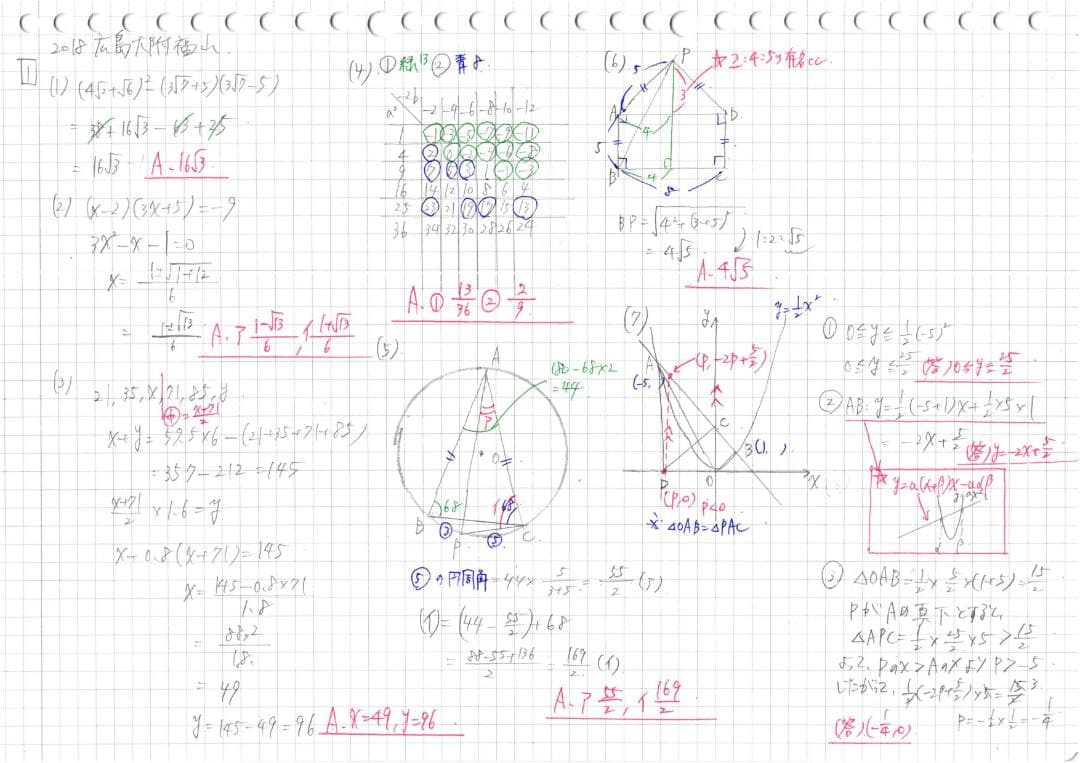 2018 広島大附福山
1
(1) (4√2+√6)² - (3√7+5)(3√7-5)
= 38+16√3 - 63+25
= 16√3 A. 16√3
(2) (x-2)(3x+5)=-9
3x²-x-1=0
x= 1±√1+12 / 6
= 1±√13 / 6 A. ア 1-√13 / 6 , イ 1+√13 / 6
(3)
21, 35, x, 71, 85, y
中= x+71 / 2
x+y = 59.5×6-(21+35+71+85)
= 357-212 = 145
x+71 / 2 ×1.6 = y
x+0.8(x+71)=145
x= 145-0.8×71 / 1.8
= 88.2 / 1.8
= 49
y=145-49=96 A. x=49, y=96
(4) ① 緑13 ② 青8
a² -2b -2 -4 -6 -8 -10 -12
1 -1 -3 -5 -7 -9 -11
4 2 0 -2 -4 -6 -8
9 7 5 3 1 -1 -3
16 14 12 10 8 6 4
25 23 21 19 17 15 13
36 34 32 30 28 26 24
A. ① 13/36 ② 2/9
(5)
A
180-68×2
=44
ア
O
68
イ
68
B
③
P
⑤
C
⑤の円周角=44× 5 / 3+5 = 55/2 (ア)
(イ)=(44- 55/2 )+68
= 88-55+136 / 2 = 169/2 (イ)
A. ア 55/2 , イ 169/2
(6)
P
☆ 3:4:5は有名比
5
3
A
4
D
5
B
4
C
8
BP=√4²+(3+5)²
= 4√5 1:2:√5
A. 4√5
(7)
y
y=½x²
(p, -2p+ 5/2 )
A
(-5, )
C
B(1, )
P
O
x
(p,0) p<0
※ △OAB=△PAC
① 0≦y≦ ½(-5)²
0≦y≦ 25/2 (答) 0≦y≦ 25/2
② AB: y=½(-5+1)x+½×5×1
= -2x+ 5/2
(答) y=-2x+ 5/2
☆ y=a(α+β)x-aαβ
y=ax²
α
β
③ △OAB=½× 5/2 ×(1+5)= 15/2
PがAの真下とすると、
△APC=½× 25/2 ×5> 15/2
よって、Pのx>Aのxより P>-5
したがって、½(-2p+ 5/2 )×5= 15/2 3
p=-½×½=-¼
(答)(-¼,0)